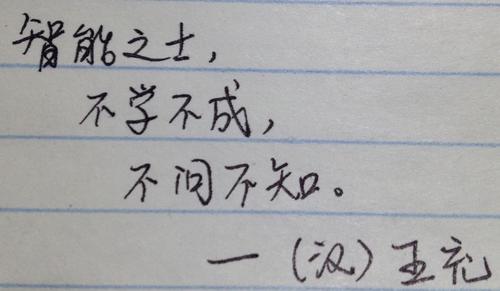 智能之士，
不学不成，
不问不知。
—（汉）王充